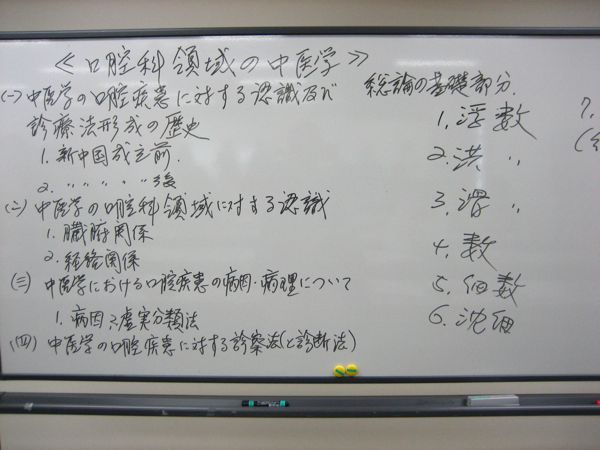 ≪口腔科領域の中医学≫
(一)中医学の口腔疾患に対する認識及び
診療法形成の歴史
1.新中国成立前.
2.〃〃〃〃〃後
(二)中医学の口腔科領域に対する認識
1.臓腑関係
2.経絡関係
(三)中医学における口腔疾患の病因・病理について
1.病因 虚実分類法
(四)中医学の口腔疾患に対する診察法(と診断法)
総論の基礎部分.
1.浮数
2.洪〃
3.滑〃
4.数
5.細数
6.沈細
7.